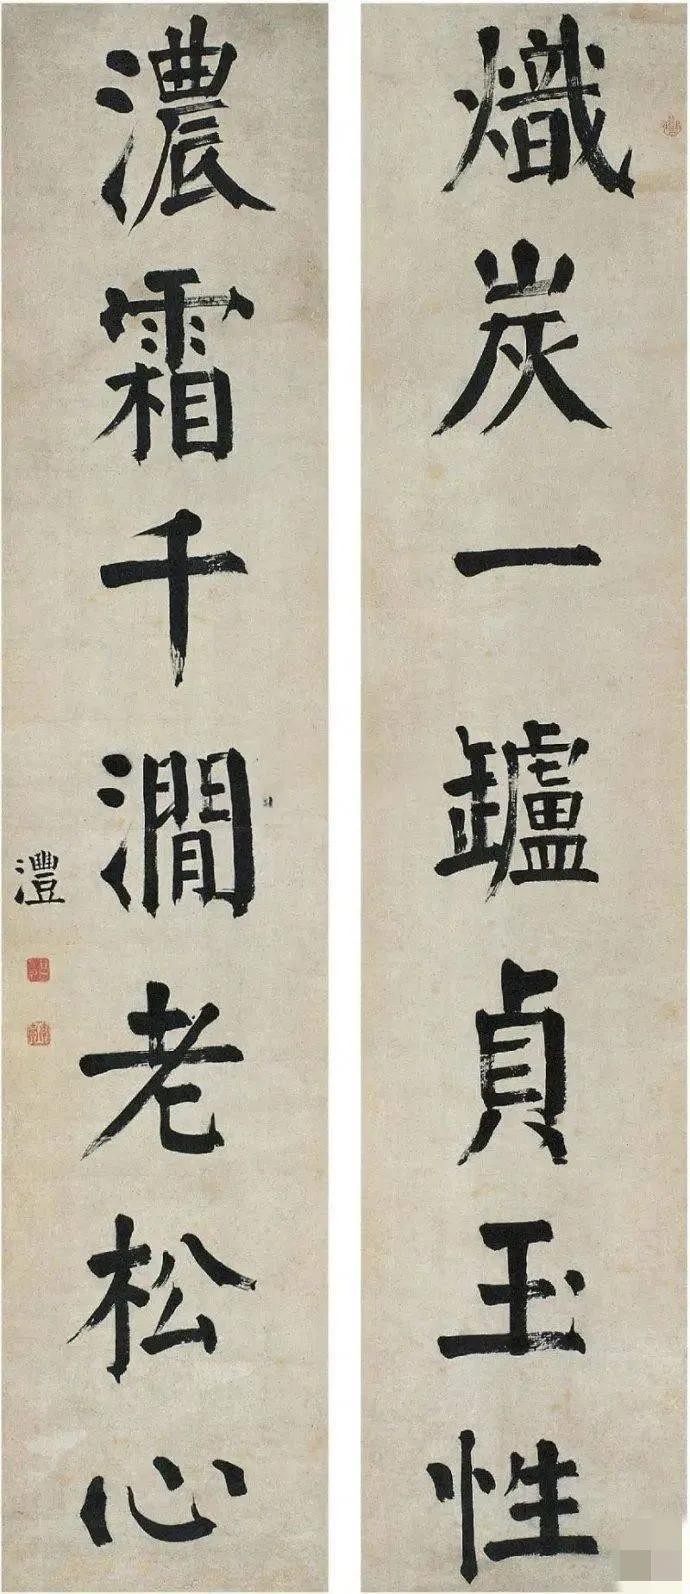 熾炭一鑪貞玉性
濃霜千澗老松心
灃